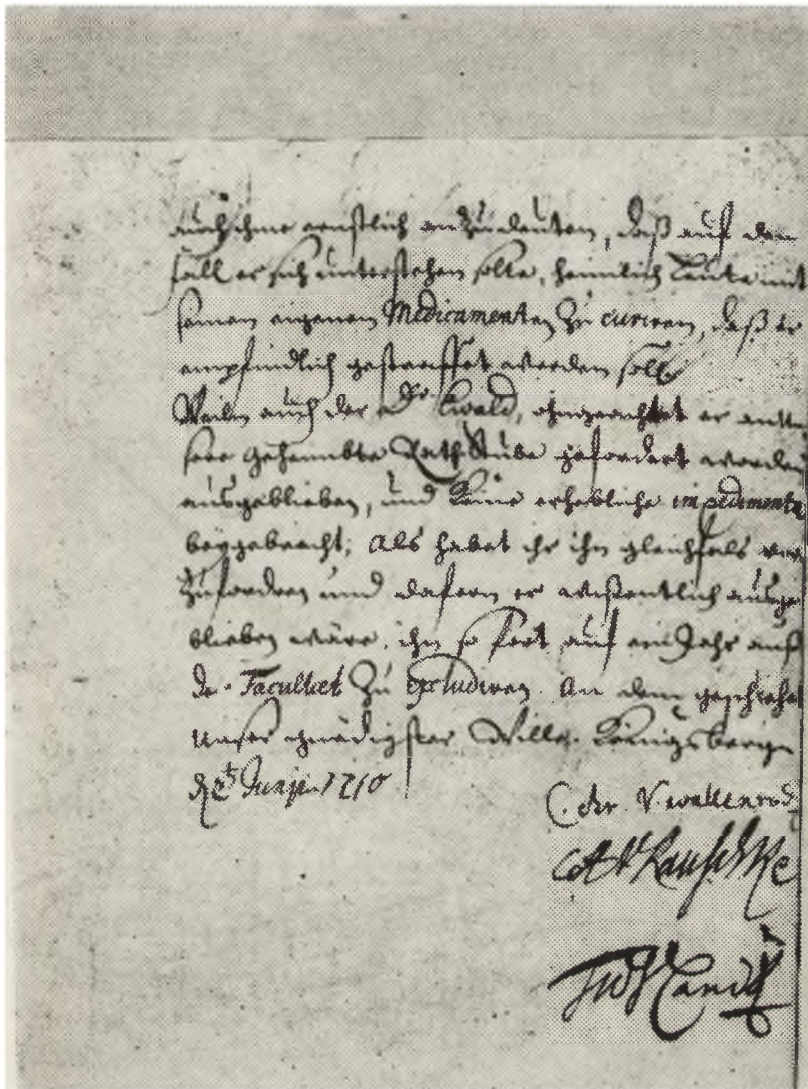 auch ihme ernstlich anzudeuten, daß auf den
fall er sich unterstehen solte, heimlich Leute mit
seinen eigenen Medicamenten zu curiren, daß er
empfindlich gestraffet werden solle
Weiln auch der Dr Ewald, ohngeachtet er
gefordert worden
ausgeblieben, und keine erhebliche impedimenta
beygebracht; Als habet ihr ihn gleichfals vor
zufordren und dafern er wißentlich ausge
blieben wäre, ihn so fort auf ein Jahr auß
der Facultæt zu excludiren. An dem geschiehet
unser gnädigster Wille. Königsberg
d 2t Junij 1710
C. v. wallenrodt